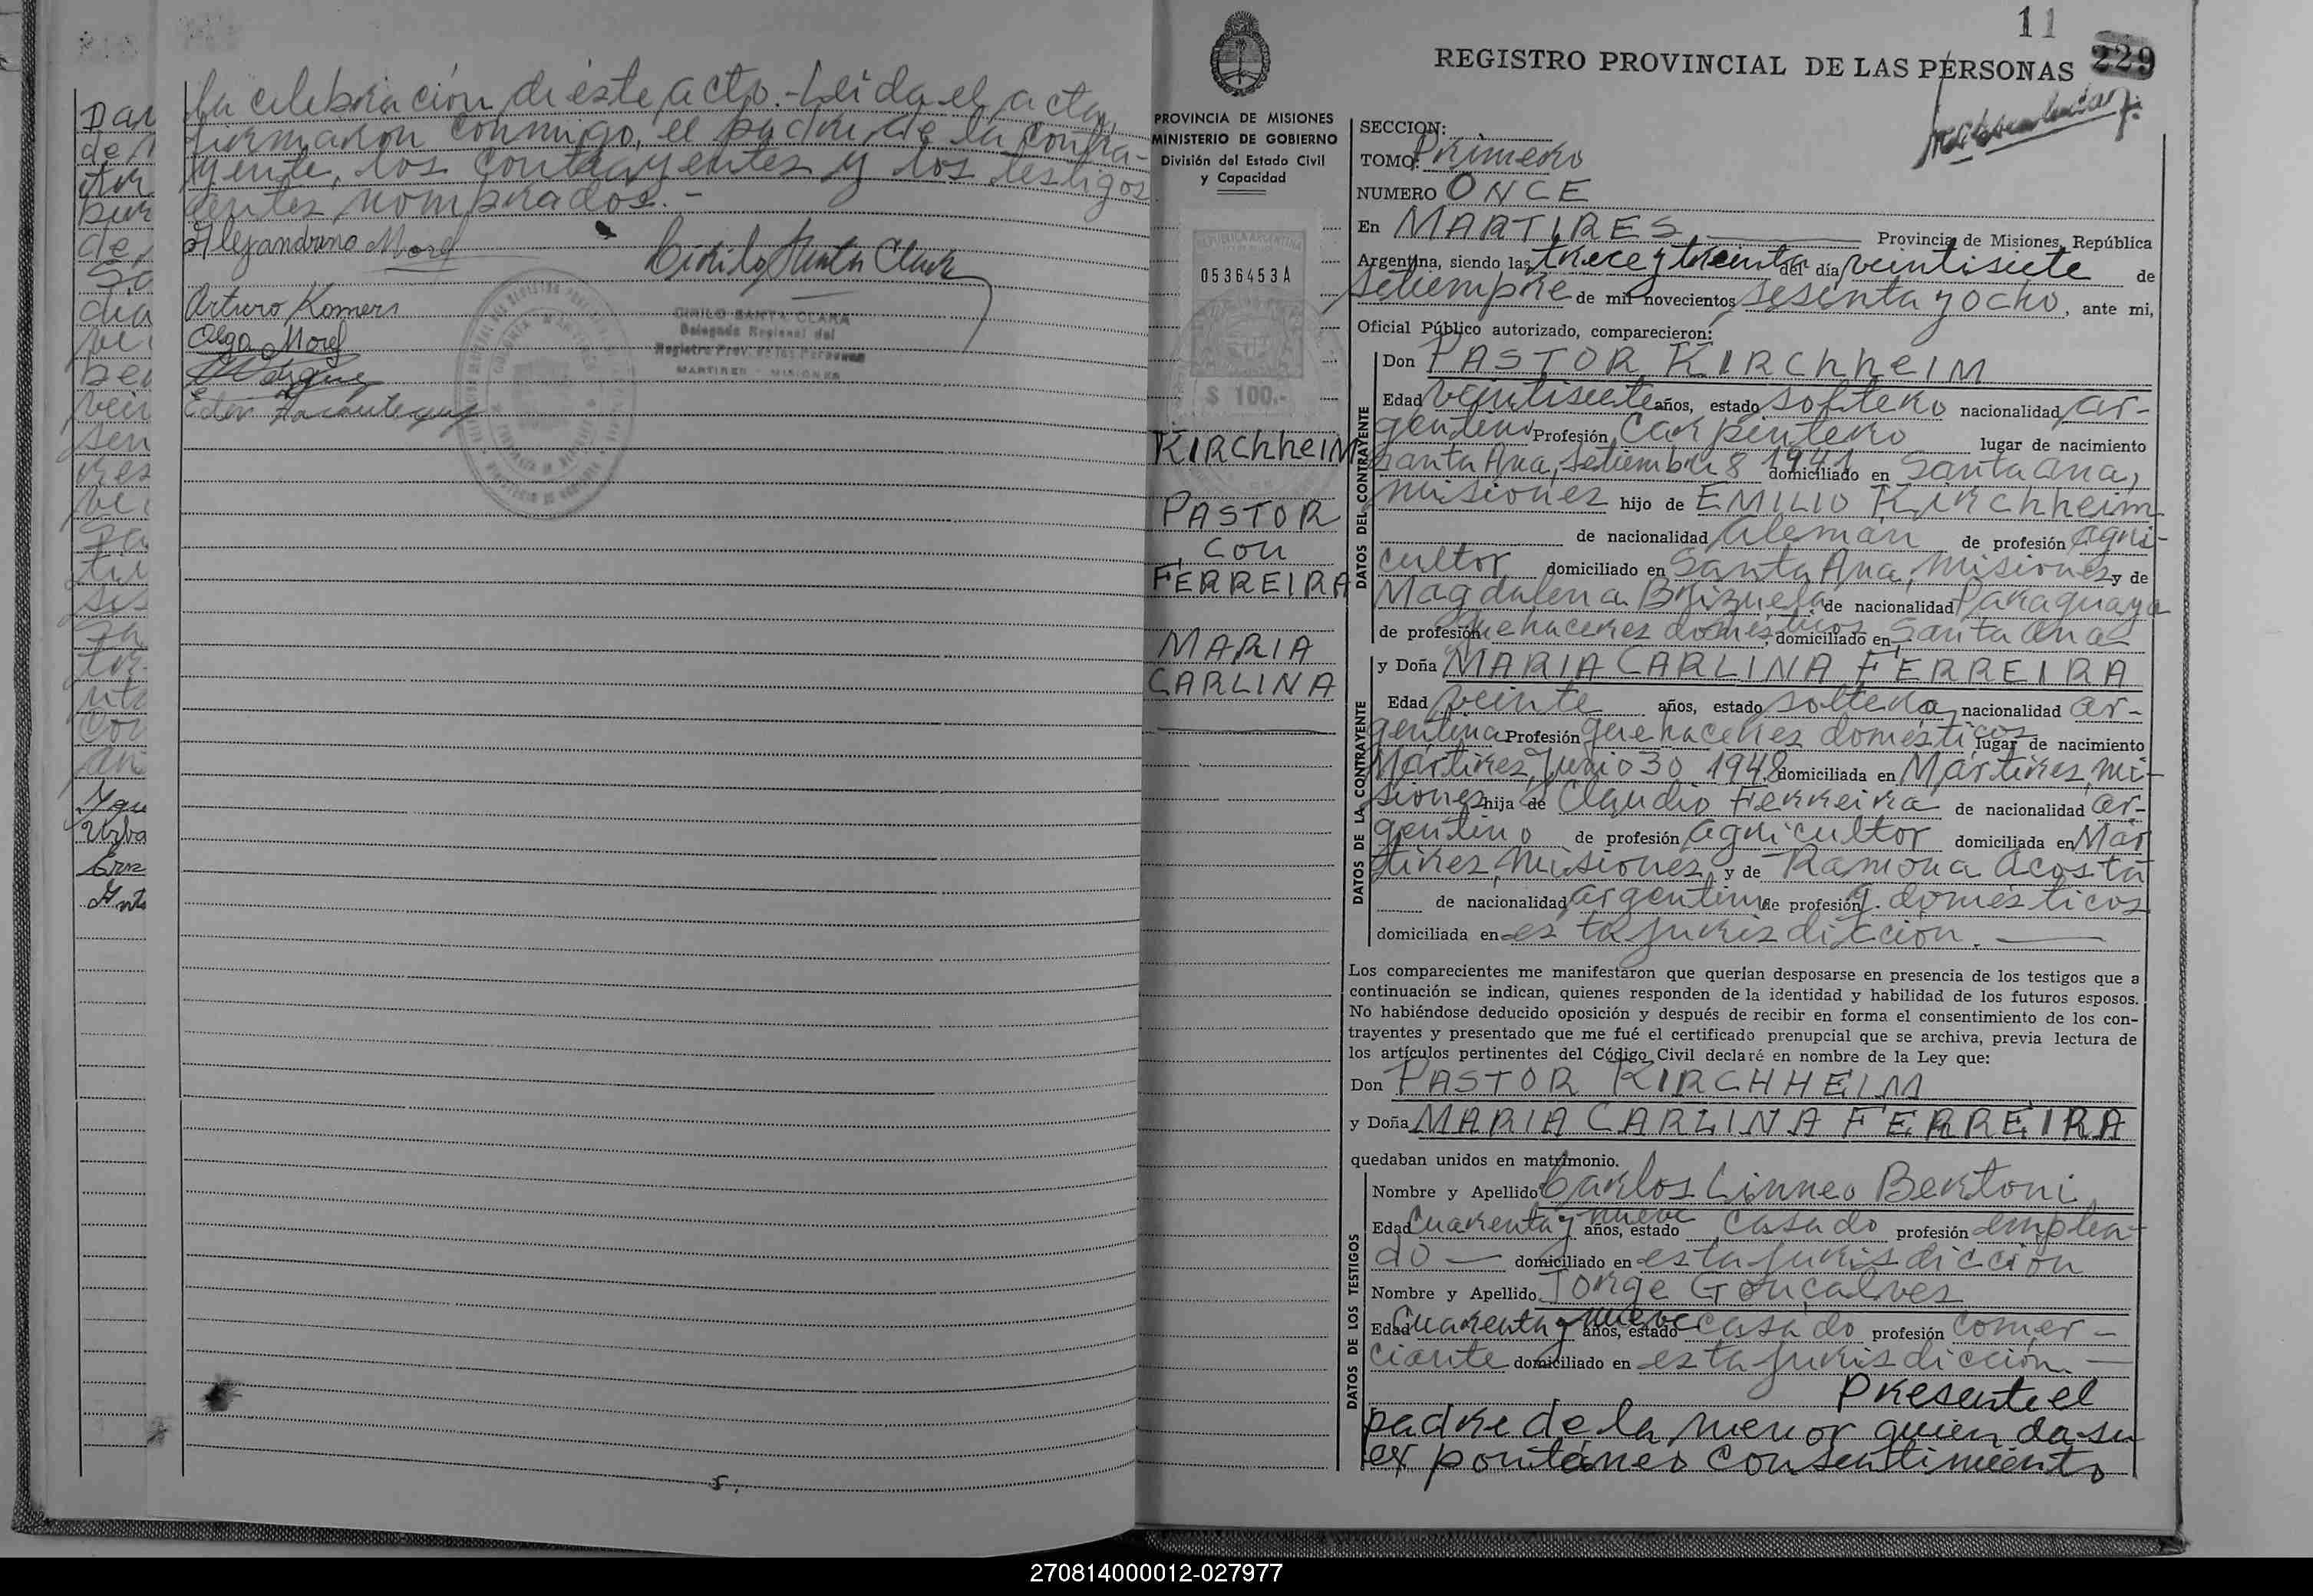 la celebración de este acto.- Leida el acta,
firmaron conmigo, el padre de la contra-
yente, los contrayentes y los testigos
antes nombrados.-
Alejandrino Morel
Cirilo Santa Clara
Arturo Komers
Olga Morel
CIRILO SANTA CLARA
Delegado Regional del
Registro Prov. de las Personas
MARTIRES - MISIONES
Dar
de
pur
de,
dia
vei
sen
res
Sa
tor
Con
an
Urba
11
REGISTRO PROVINCIAL DE LAS PERSONAS 229
PROVINCIA DE MISIONES
MINISTERIO DE GOBIERNO
División del Estado Civil
y Capacidad
REPUBLICA ARGENTINA
0536453A
$ 100.-
KIRchheIM
PASTOR
con
FERREIRA
MARIA
CARLINA
SECCION:
TOMO: Primero
NUMERO ONCE
En MARTIRES Provincia de Misiones, República
Argentina, siendo las trece y treinta del día veintisiete de
setiembre de mil novecientos sesenta y ocho, ante mi,
Oficial Público autorizado, comparecieron:
DATOS DEL CONTRAYENTE
Don PASTOR KIRchheIM
Edad veintisiete años, estado soltero nacionalidad ar-
gentino Profesión Carpintero lugar de nacimiento
Santa Ana, Setiembre 8 1941 domiciliado en Santa Ana,
Misiones hijo de EMILIO KIRchheim
de nacionalidad Alemán de profesión agri-
cultor domiciliado en Santa Ana, Misiones y de
Magdalena Brizuela de nacionalidad Paraguaya
de profesión quehaceres domésticos, domiciliado en Santa Ana
DATOS DE LA CONTRAYENTE
y Doña MARIA CARLINA FERREIRA
Edad veinte años, estado soltera, nacionalidad ar-
gentina Profesión quehaceres domésticos lugar de nacimiento
Mártires, Junio 30 1948 domiciliada en Mártires, Mi-
siones hija de Claudio Ferreira de nacionalidad ar-
gentino de profesión agricultor domiciliada en Már
tires, Misiones y de Ramona Acosta
de nacionalidad argentina de profesión q. domésticos
domiciliada en esta jurisdicción.
Los comparecientes me manifestaron que querían desposarse en presencia de los testigos que a
continuación se indican, quienes responden de la identidad y habilidad de los futuros esposos.
No habiéndose deducido oposición y después de recibir en forma el consentimiento de los con-
trayentes y presentado que me fué el certificado prenupcial que se archiva, previa lectura de
los artículos pertinentes del Código Civil declaré en nombre de la Ley que:
Don PASTOR KIRCHHEIM
y Doña MARIA CARLINA FERREIRA
quedaban unidos en matrimonio.
DATOS DE LOS TESTIGOS
Nombre y Apellido Carlos Linneo Bertoni
Edad Cuarenta y nueve años, estado Casado profesión emplea-
do — domiciliado en esta jurisdicción
Nombre y Apellido Jorge Gonçalves
Edad Cuarenta y nueve años, estado casado profesión comer-
ciante domiciliado en esta jurisdicción.—
Presente el
padre de la menor quien da su
expontáneo consentimiento
270814000012-027977